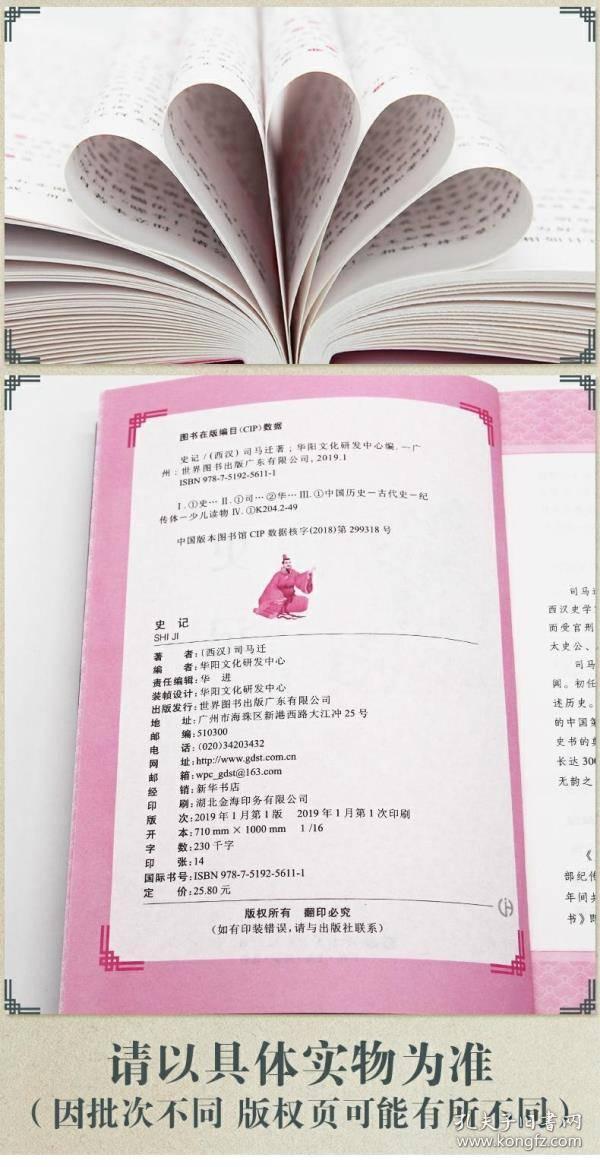 图书在版编目(CIP)数据
史记/(西汉)司马迁著;华阳文化研发中心编.—广
州:世界图书出版广东有限公司,2019.1
ISBN 978-7-5192-5611-1
Ⅰ.①史… Ⅱ.①司…②华… Ⅲ.①中国历史－古代史－纪
传体－少儿读物 Ⅳ.①K204.2-49
中国版本图书馆CIP数据核字(2018)第299318号
史 记
SHI JI
著 者:(西汉)司马迁
编 者:华阳文化研发中心
责任编辑:华 进
装帧设计:华阳文化研发中心
出版发行:世界图书出版广东有限公司
地 址:广州市海珠区新港西路大江冲25号
邮 编:510300
电 话:(020)34203432
网 址:http://www.gdst.com.cn
邮 箱:wpc_gdst@163.com
经 销:新华书店
印 刷:湖北金海印务有限公司
版 次:2019年1月第1版 2019年1月第1次印刷
开 本:710 mm × 1000 mm 1/16
字 数:230千字
印 张:14
国际书号:ISBN 978-7-5192-5611-1
定 价:25.80元
版权所有 翻印必究
(如有印装错误,请与出版社联系)
司马迁
西汉史学
而受官刑
太史公、
司马
阅。初任
述历史。
的中国第
史书的典
长达300
无韵之
《
部纪传
年间共
书》即
请以具体实物为准
(因批次不同 版权页可能有所不同)
孔夫子旧書网
www.kongfz.com